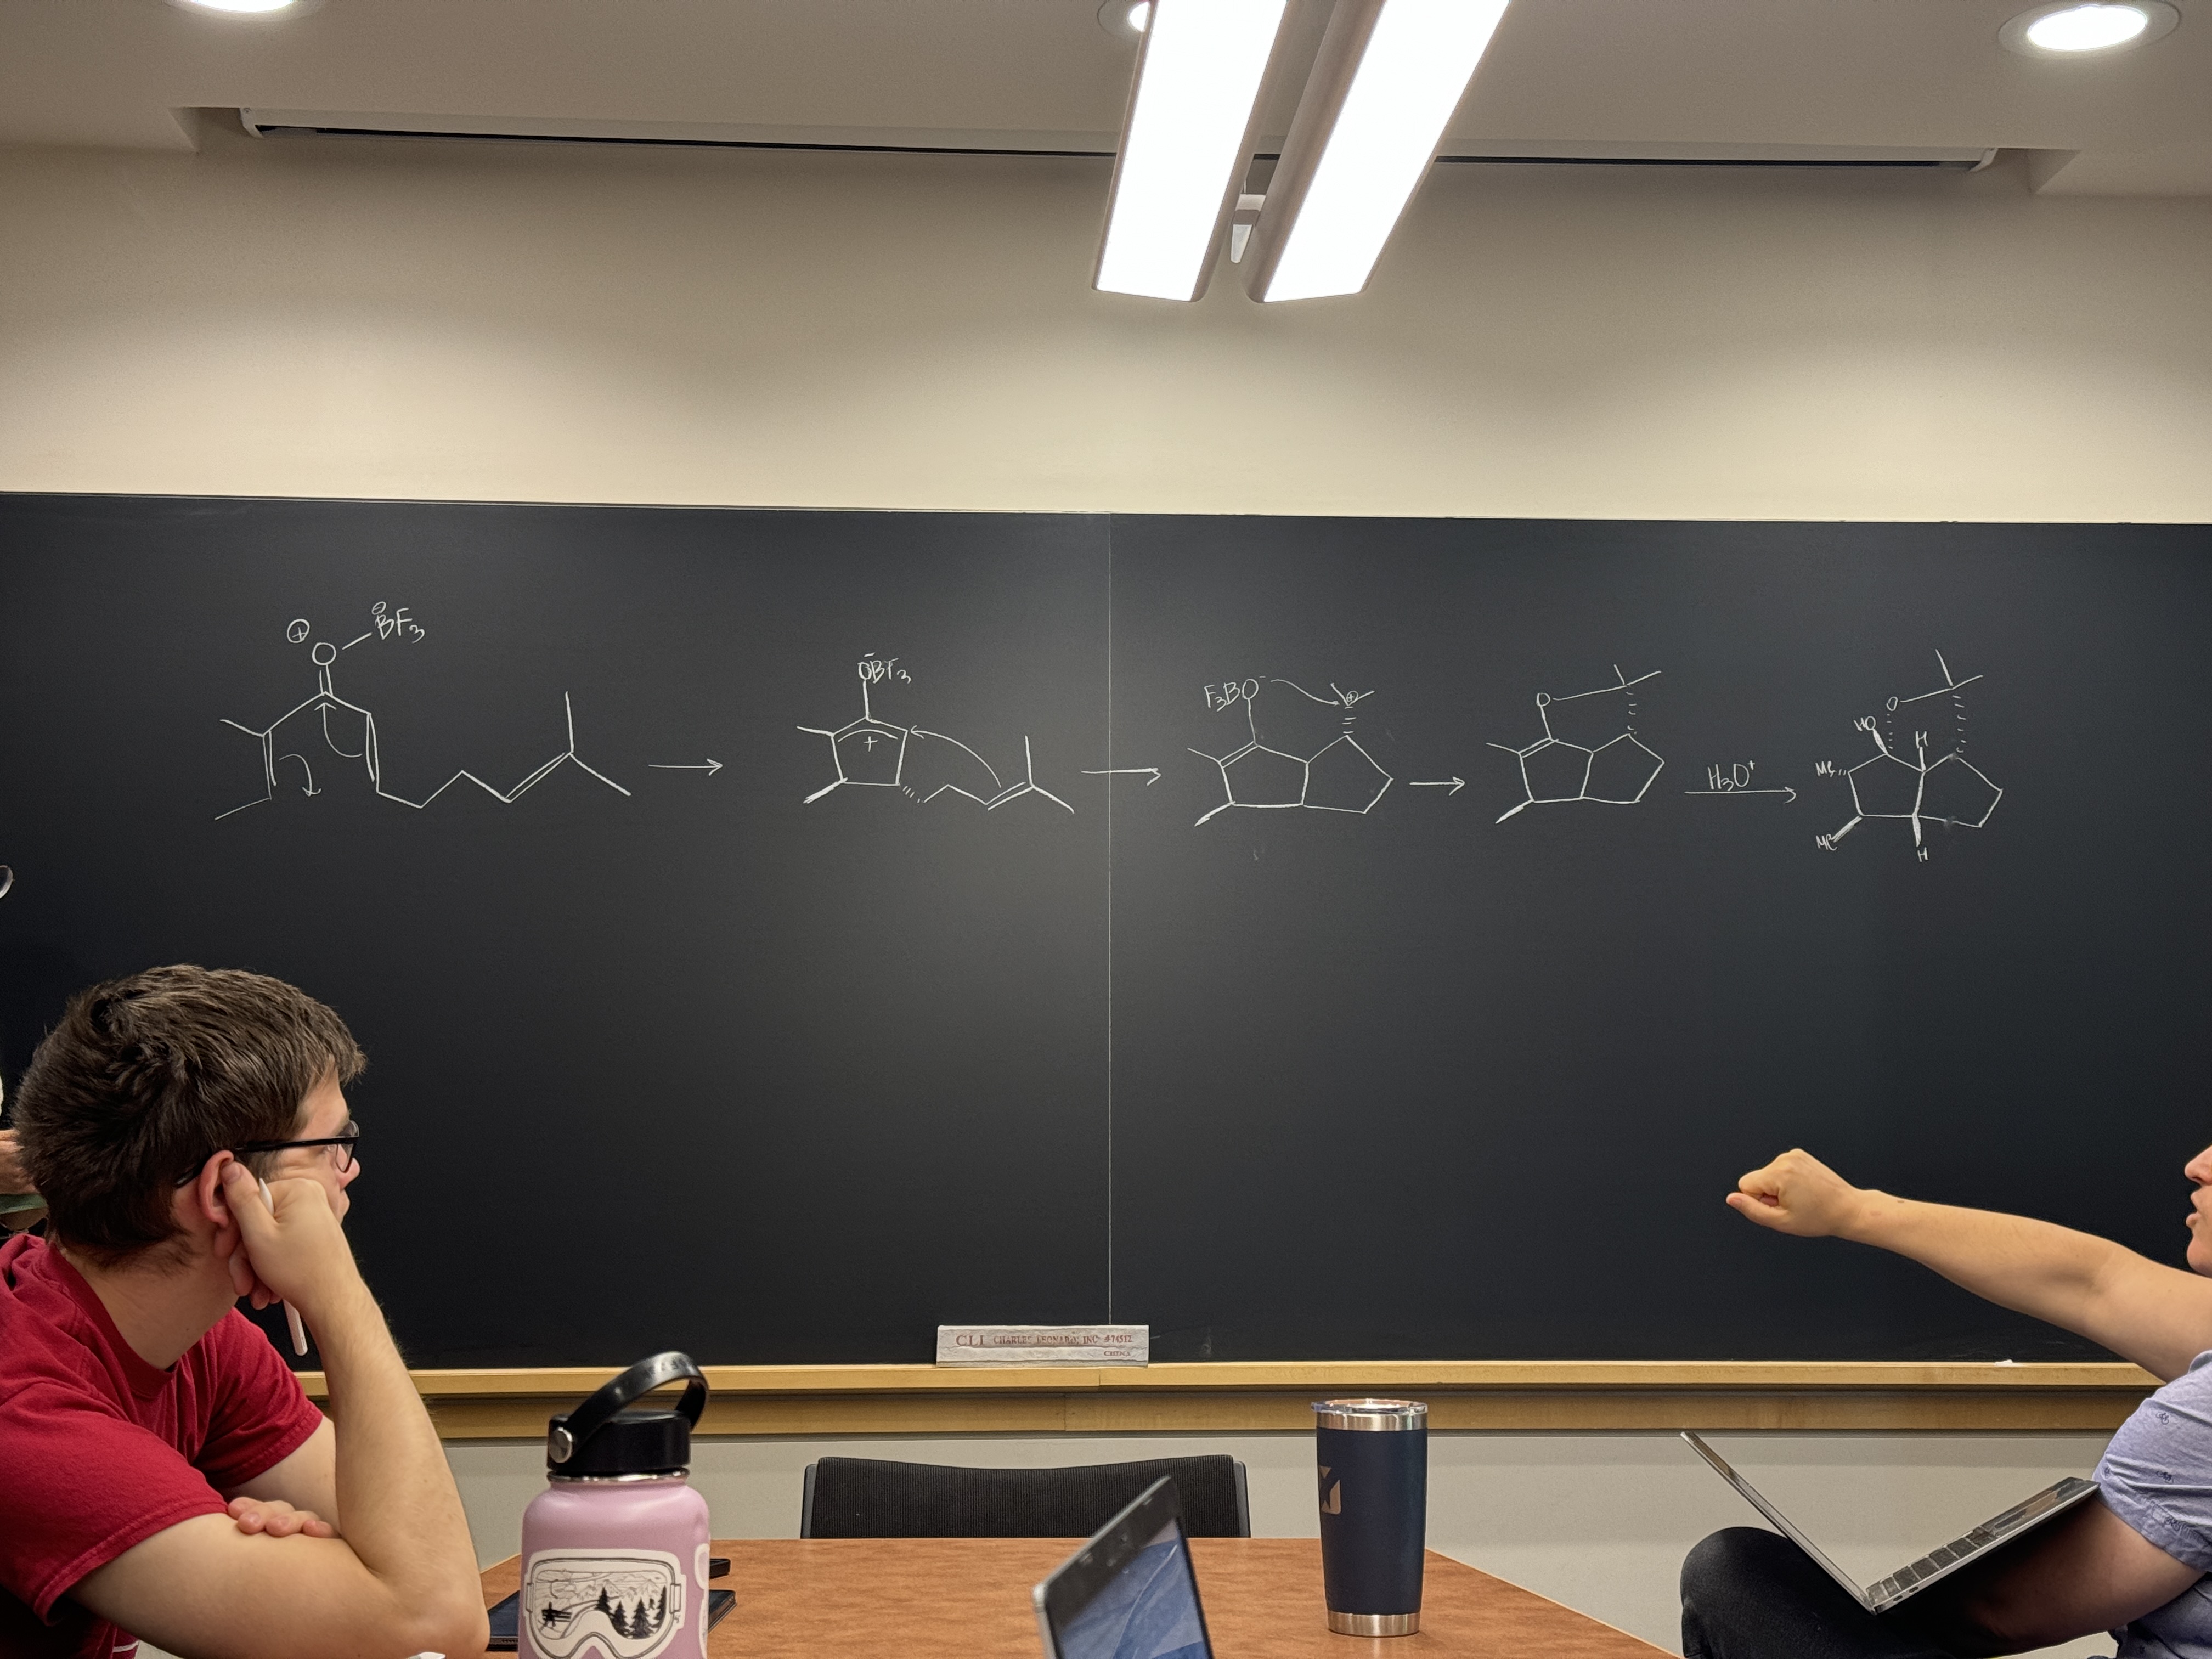 ⊕
O
⊖
BF₃
ŌBF₃
+
F₃BO⁻
⊕
O
H₃O⁺
O
HO
H
Me
Me
H
CLI CHARLES LEONARD, INC. #74512
CHINA